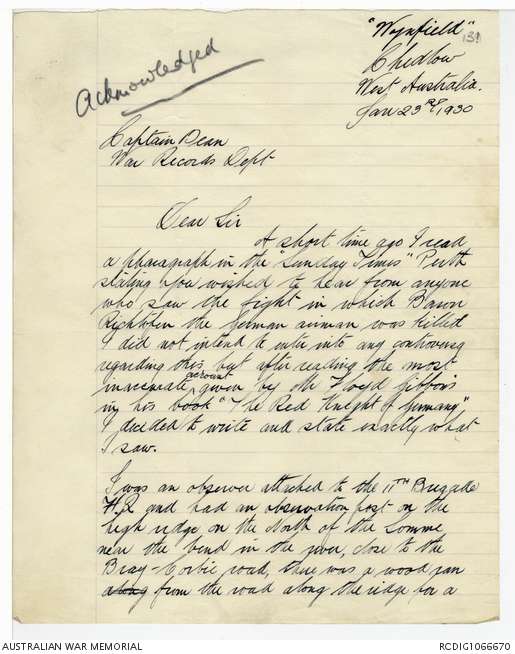 "Wynfield"
131
Chidlow
West Australia.
Jan 23rd, 1930
Acknowledged
Captain Bean
War Records Dept
Dear Sir
A short time ago I read
a pharagraph in the "Sunday Times" Perth
stating you wished to hear from anyone
who saw the fight in which Baron
Richtofen the German airman was killed
I did not intend to enter into any controversy
regarding this, but after reading the most
inaccurate account given by Mr Floyd Gibbons
in his book "The Red Knight of Germany"
I decided to write and state exactly what
I saw.
I was an observer attached to the 11TH Brigade
H.Q and had an observation post on the
high ridge on the North of the Somme
near the bend in the river, close to the
Bray-Corbie road, there was a wood ran
along from the road along the ridge for a
AUSTRALIAN WAR MEMORIAL
RCDIG1066670